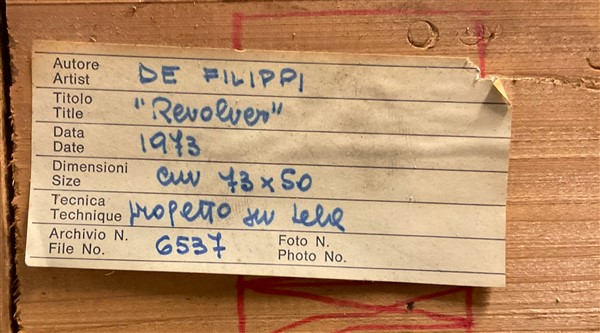 Autore
Artist DE FILIPPI
Titolo
Title "Revolver"
Data
Date 1973
Dimensioni
Size cm 73x50
Tecnica
Technique progetto su tela
Archivio N.
File No. 6537
Foto N.
Photo No.